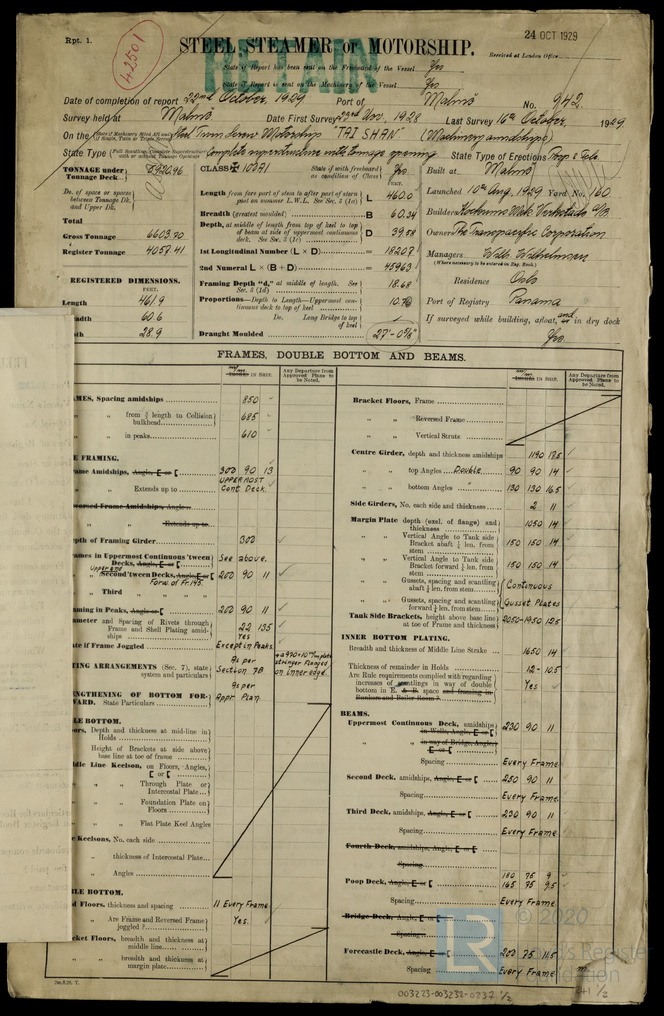 Rpt. 1.
42501
RETAIN
24 OCT 1929
STEEL STEAMER or MOTORSHIP.
Received at London Office
State if Report has been sent on the Freeboard of the Vessel Yes
State if Report is sent on the Machinery of the Vessel Yes
Date of completion of report 22nd October, 1929 Port of Malmö No. 942
Survey held at Malmö Date First Survey 23rd Nov. 1928 Last Survey 16th October, 1929
On the Steel Twin Screw Motorship "TAI SHAN" (Machinery amidships)
State Type Complete superstructure with tonnage opening State Type of Erections Poop & Fcle.
TONNAGE under Tonnage Deck
Do. of space or spaces between Tonnage Dk. and Upper Dk.
Total
Gross Tonnage 6603.20
Register Tonnage 4057.41
REGISTERED DIMENSIONS.
FEET.
Length 461.9
60.6
28.9
CLASS 100A1 State if with freeboard as condition of Class Yes
FEET.
Length from fore part of stem to after part of stern post on summer L.W.L. See Sec. 2 (1a) L 460.0
Breadth (greatest moulded) B 60.34
Depth, at middle of length from top of keel to top of beam at side of uppermost continuous deck. See Sec. 2 (1c) D 39.58
1st Longitudinal Number (L × D) = 18207
2nd Numeral L × (B + D) = 45963
Framing Depth "d," at middle of length. See Sec. 2 (1d) 18.68
Proportions—Depth to Length—Uppermost continuous deck to top of keel
Do. Long Bridge to top of keel
Draught Moulded 27'-0⅝"
Built at Malmö
Launched 10th Aug. 1929 Yard No. 160
Builders Kockums Mek. Verkstads A/B
Owners The Transpacific Corporation
Managers Wilh. Wilhelmsen
(Where necessary to be entered in Reg. Book.)
Residence Oslo
Port of Registry Panama
If surveyed while building, afloat, and or in dry dock
Yes
FRAMES, DOUBLE BOTTOM AND BEAMS.
IN SHIP.
Any Departure from Approved Plans to be Noted.
IN SHIP.
Any Departure from Approved Plans to be Noted.
AMES, Spacing amidships 850
" " from ⅕ length to Collision bulkhead 685
" " in peaks 610
E FRAMING.
rame Amidships, Angle, E or [ 300 90 13
" " Extends up to UPPERMOST Cont. Deck.
versed Frame Amidships, Angle
" " Extends up to
epth of Framing Girder 300
rames in Uppermost Continuous 'tween Decks, Angle, E or [ See above.
" Upper and Second 'tween Decks, Angle, E or [ 200 90 11
Forw. of Fr. 145.
" Third " "
aming in Peaks, Angle or [ 200 90 11
ameter and Spacing of Rivets through Frame and Shell Plating amidships 22 135
ate if Frame Joggled Yes Except in Peaks.
ING ARRANGEMENTS (Sec. 7), state system and particulars As per Section 7B
stringer flanged on inner edge.
ENGTHENING OF BOTTOM FORWARD. State Particulars As per Appr. Plan
LE BOTTOM.
ors, Depth and thickness at mid-line in Holds
Height of Brackets at side above base line at toe of frame
dle Line Keelson, on Floors, Angles, E or [
" " Through Plate or Intercostal Plate
" " Foundation Plate on Floors
" " Flat Plate Keel Angles
e Keelsons, No. each side
" thickness of Intercostal Plate
" Angles
BLE BOTTOM.
d Floors, thickness and spacing 11 Every Frame
" Are Frame and Reversed Frame joggled? Yes.
cket Floors, breadth and thickness at middle line
" breadth and thickness at margin plate
Bracket Floors, Frame
" " Reversed Frame
" " Vertical Struts
Centre Girder, depth and thickness amidships 1190 17.5
" top Angles Double 90 90 14
" bottom Angles " 130 130 16.5
Side Girders, No. each side and thickness 2 11
Margin Plate depth (excl. of flange) and thickness 1050 14
" Vertical Angle to Tank side Bracket abaft ¼ len. from stem 150 150 14
" Vertical Angle to Tank side Bracket forward ¼ len. from stem 150 150 14
" Gussets, spacing and scantling abaft ¼ len. from stem Continuous
" Gussets, spacing and scantling forward ¼ len. from stem Gusset Plates
Tank Side Brackets, height above base line at toe of Frame and thickness 2050-1950 12.5
INNER BOTTOM PLATING.
Breadth and thickness of Middle Line Strake 1650 14
Thickness of remainder in Holds 12 - 10.5
Are Rule requirements complied with regarding increases of scantlings in way of double bottom in E. & B. space and framing in Bunkers and Boiler Room? Yes
BEAMS.
Uppermost Continuous Deck, amidships 230 90 11
in Wells, Angle, E or [
" " in way of Bridge, Angle, E or [
Spacing Every Frame
Second Deck, amidships, Angle, E or [ 250 90 11
Spacing Every Frame.
Third Deck, amidships, Angle, E or [ 230 90 11
Spacing Every Frame
Fourth Deck, amidships, Angle, E or [
Spacing
Poop Deck, Angle, E or [ 180 75 9
165 75 9.5
Spacing Every Frame
Bridge Deck, Angle, E or [
Spacing
Forecastle Deck, Angle, E or [ 200 75 11.5
Spacing Every Frame
© 2020
Lloyd's Register Foundation
003223-003232-0232 ½